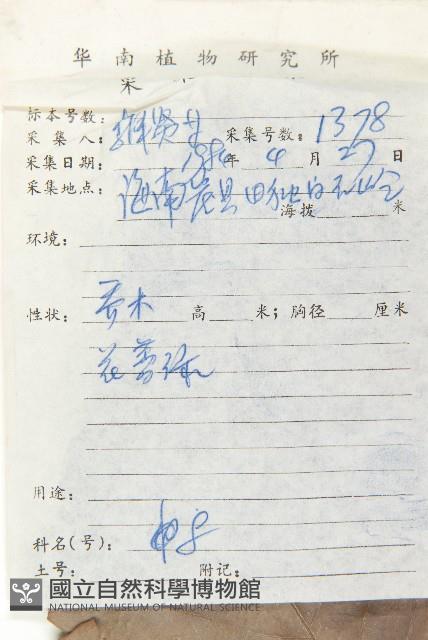 华南植物研究所
采
标本号数:
采集人: 采集号数: 1378
采集日期: 年 4 月 27 日
采集地点: 海南崖县田独
海拔 米
环境:
性状: 乔木 高 米; 胸径 厘米
花萼绿
用途:
科名(号):
土号: 附记:
國立自然科學博物館
NATIONAL MUSEUM OF NATURAL SCIENCE